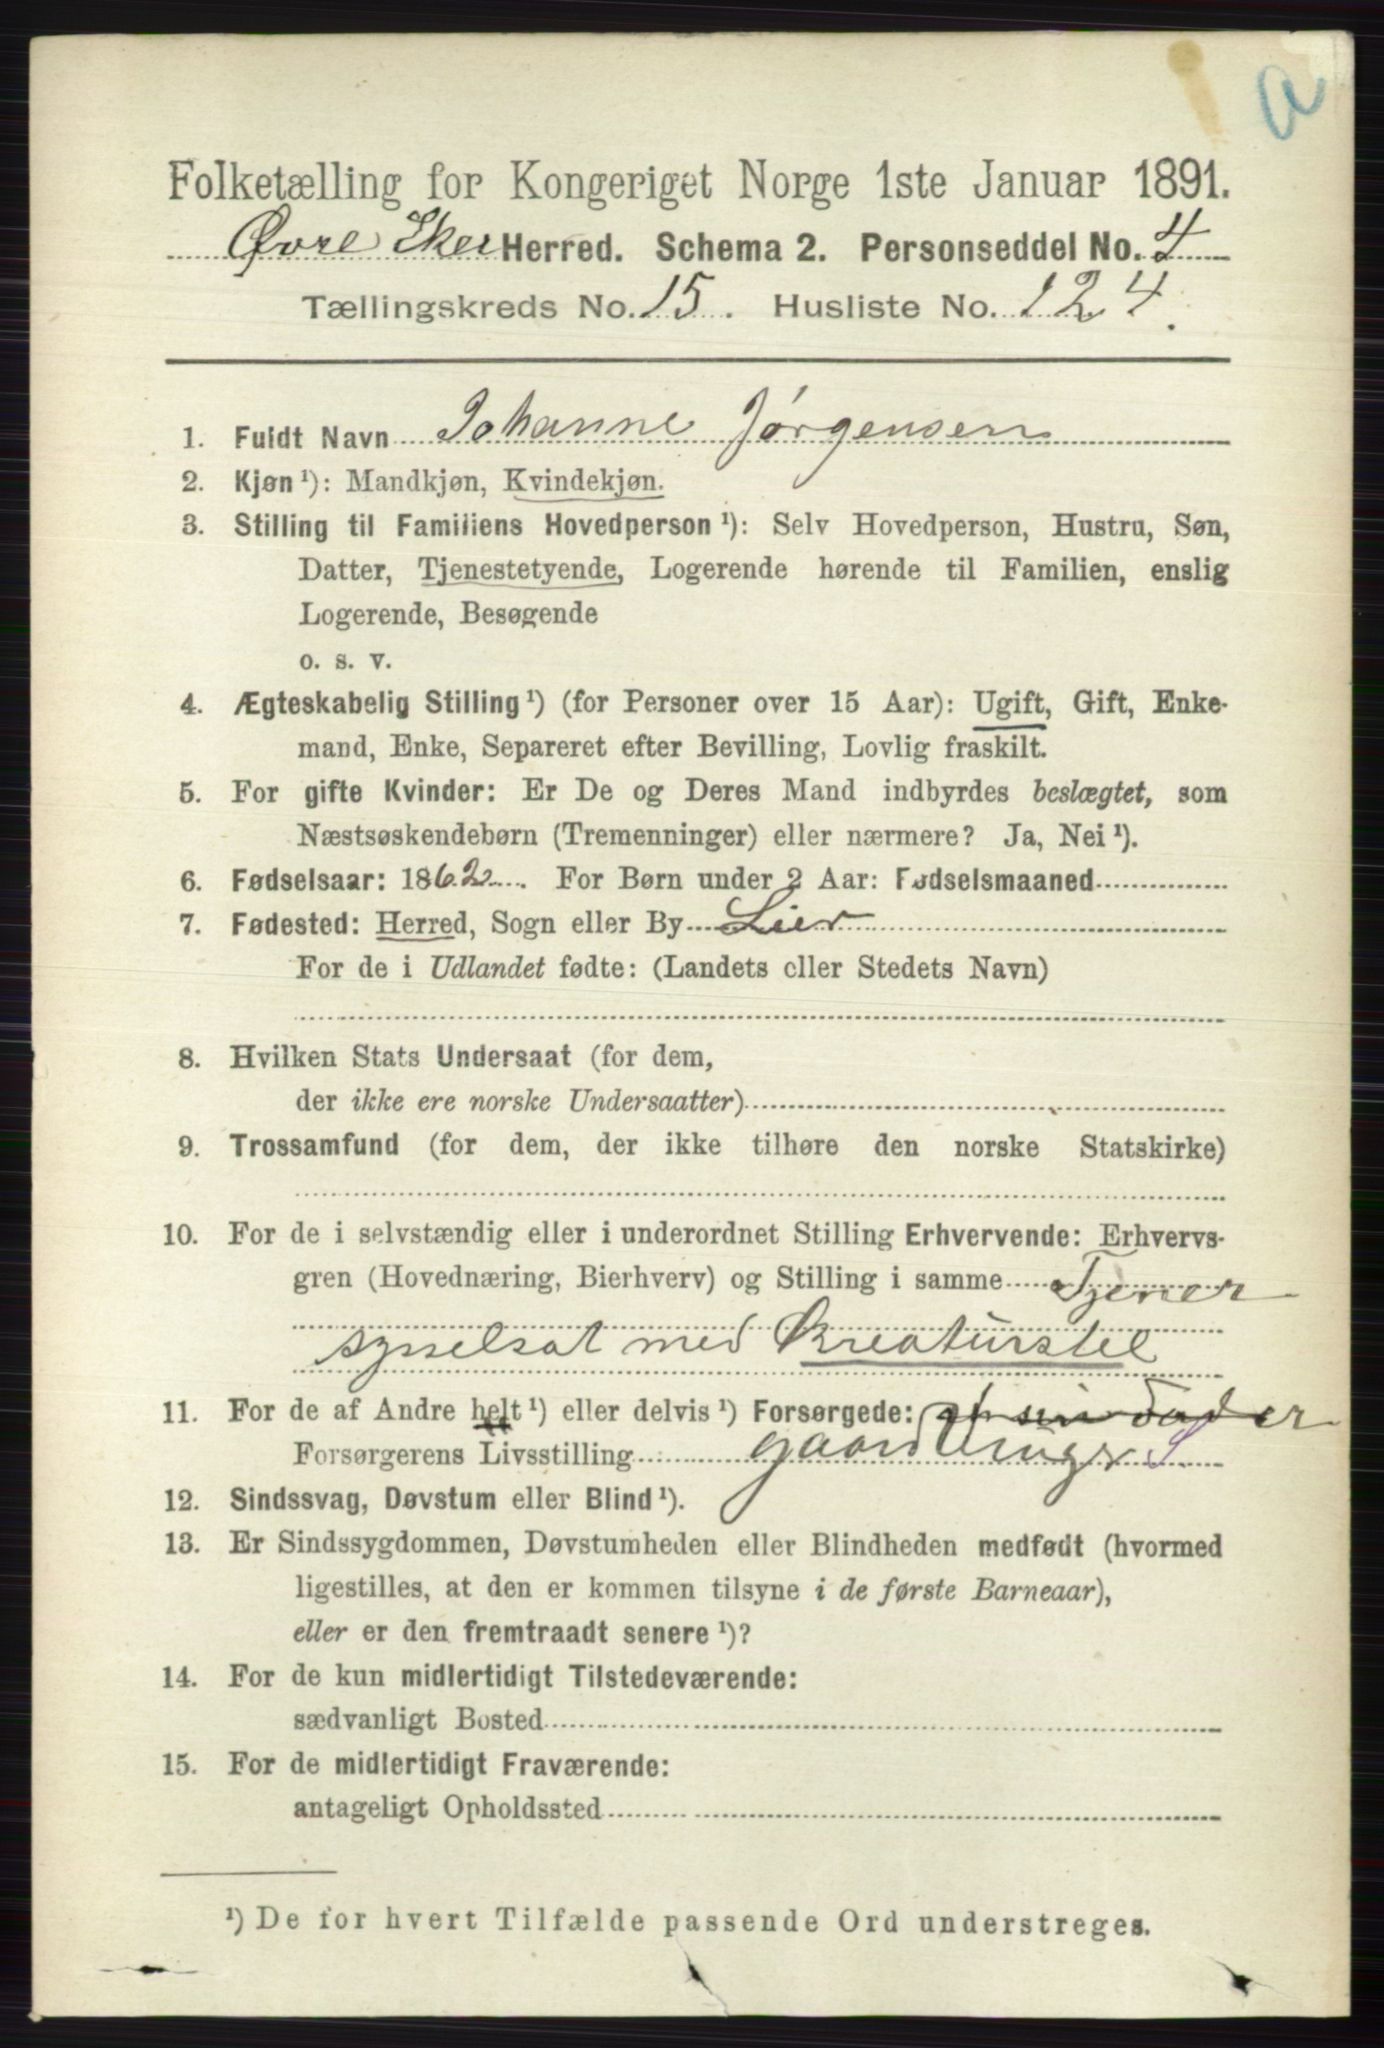 a
Folketælling for Kongeriget Norge 1ste Januar 1891.
Øvre Eker Herred. Schema 2. Personseddel No. 4
Tællingskreds No. 15. Husliste No. 124.
1. Fuldt Navn Johanne Jørgensen
2. Kjøn ¹): Mandkjøn, Kvindekjøn.
3. Stilling til Familiens Hovedperson ¹): Selv Hovedperson, Hustru, Søn,
Datter, Tjenestetyende, Logerende hørende til Familien, enslig
Logerende, Besøgende
o. s. v.
4. Ægteskabelig Stilling ¹) (for Personer over 15 Aar): Ugift, Gift, Enke-
mand, Enke, Separeret efter Bevilling, Lovlig fraskilt.
5. For gifte Kvinder: Er De og Deres Mand indbyrdes beslægtet, som
Næstsøskendebørn (Tremenninger) eller nærmere? Ja, Nei ¹).
6. Fødselsaar: 1862. For Børn under 2 Aar: Fødselsmaaned
7. Fødested: Herred, Sogn eller By Lier
For de i Udlandet fødte: (Landets eller Stedets Navn)
8. Hvilken Stats Undersaat (for dem,
der ikke ere norske Undersaatter)
9. Trossamfund (for dem, der ikke tilhøre den norske Statskirke)
10. For de i selvstændig eller i underordnet Stilling Erhvervende: Erhvervs-
gren (Hovednæring, Bierhverv) og Stilling i samme Tjener
sysselsat med Kreaturstel
11. For de af Andre helt ¹) eller delvis ¹) Forsørgede: af sin Fader
Forsørgerens Livsstilling gaardbruger
12. Sindssvag, Døvstum eller Blind ¹).
13. Er Sindssygdommen, Døvstumheden eller Blindheden medfødt (hvormed
ligestilles, at den er kommen tilsyne i de første Barneaar),
eller er den fremtraadt senere ¹)?
14. For de kun midlertidigt Tilstedeværende:
sædvanligt Bosted
15. For de midlertidigt Fraværende:
antageligt Opholdssted
¹) De for hvert Tilfælde passende Ord understreges.